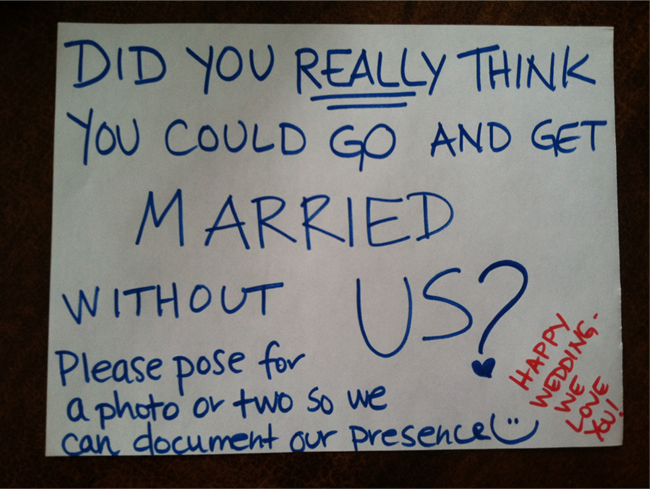 DID YOU REALLY THINK
YOU COULD GO AND GET
MARRIED
WITHOUT US?
Please pose for
a photo or two so we
can document our presence!
HAPPY
WEDDING-
WE
LOVE
YOU!